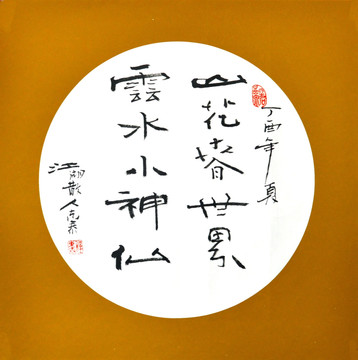 丁酉年夏
山花春世界
雲水小神仙
江湖散人